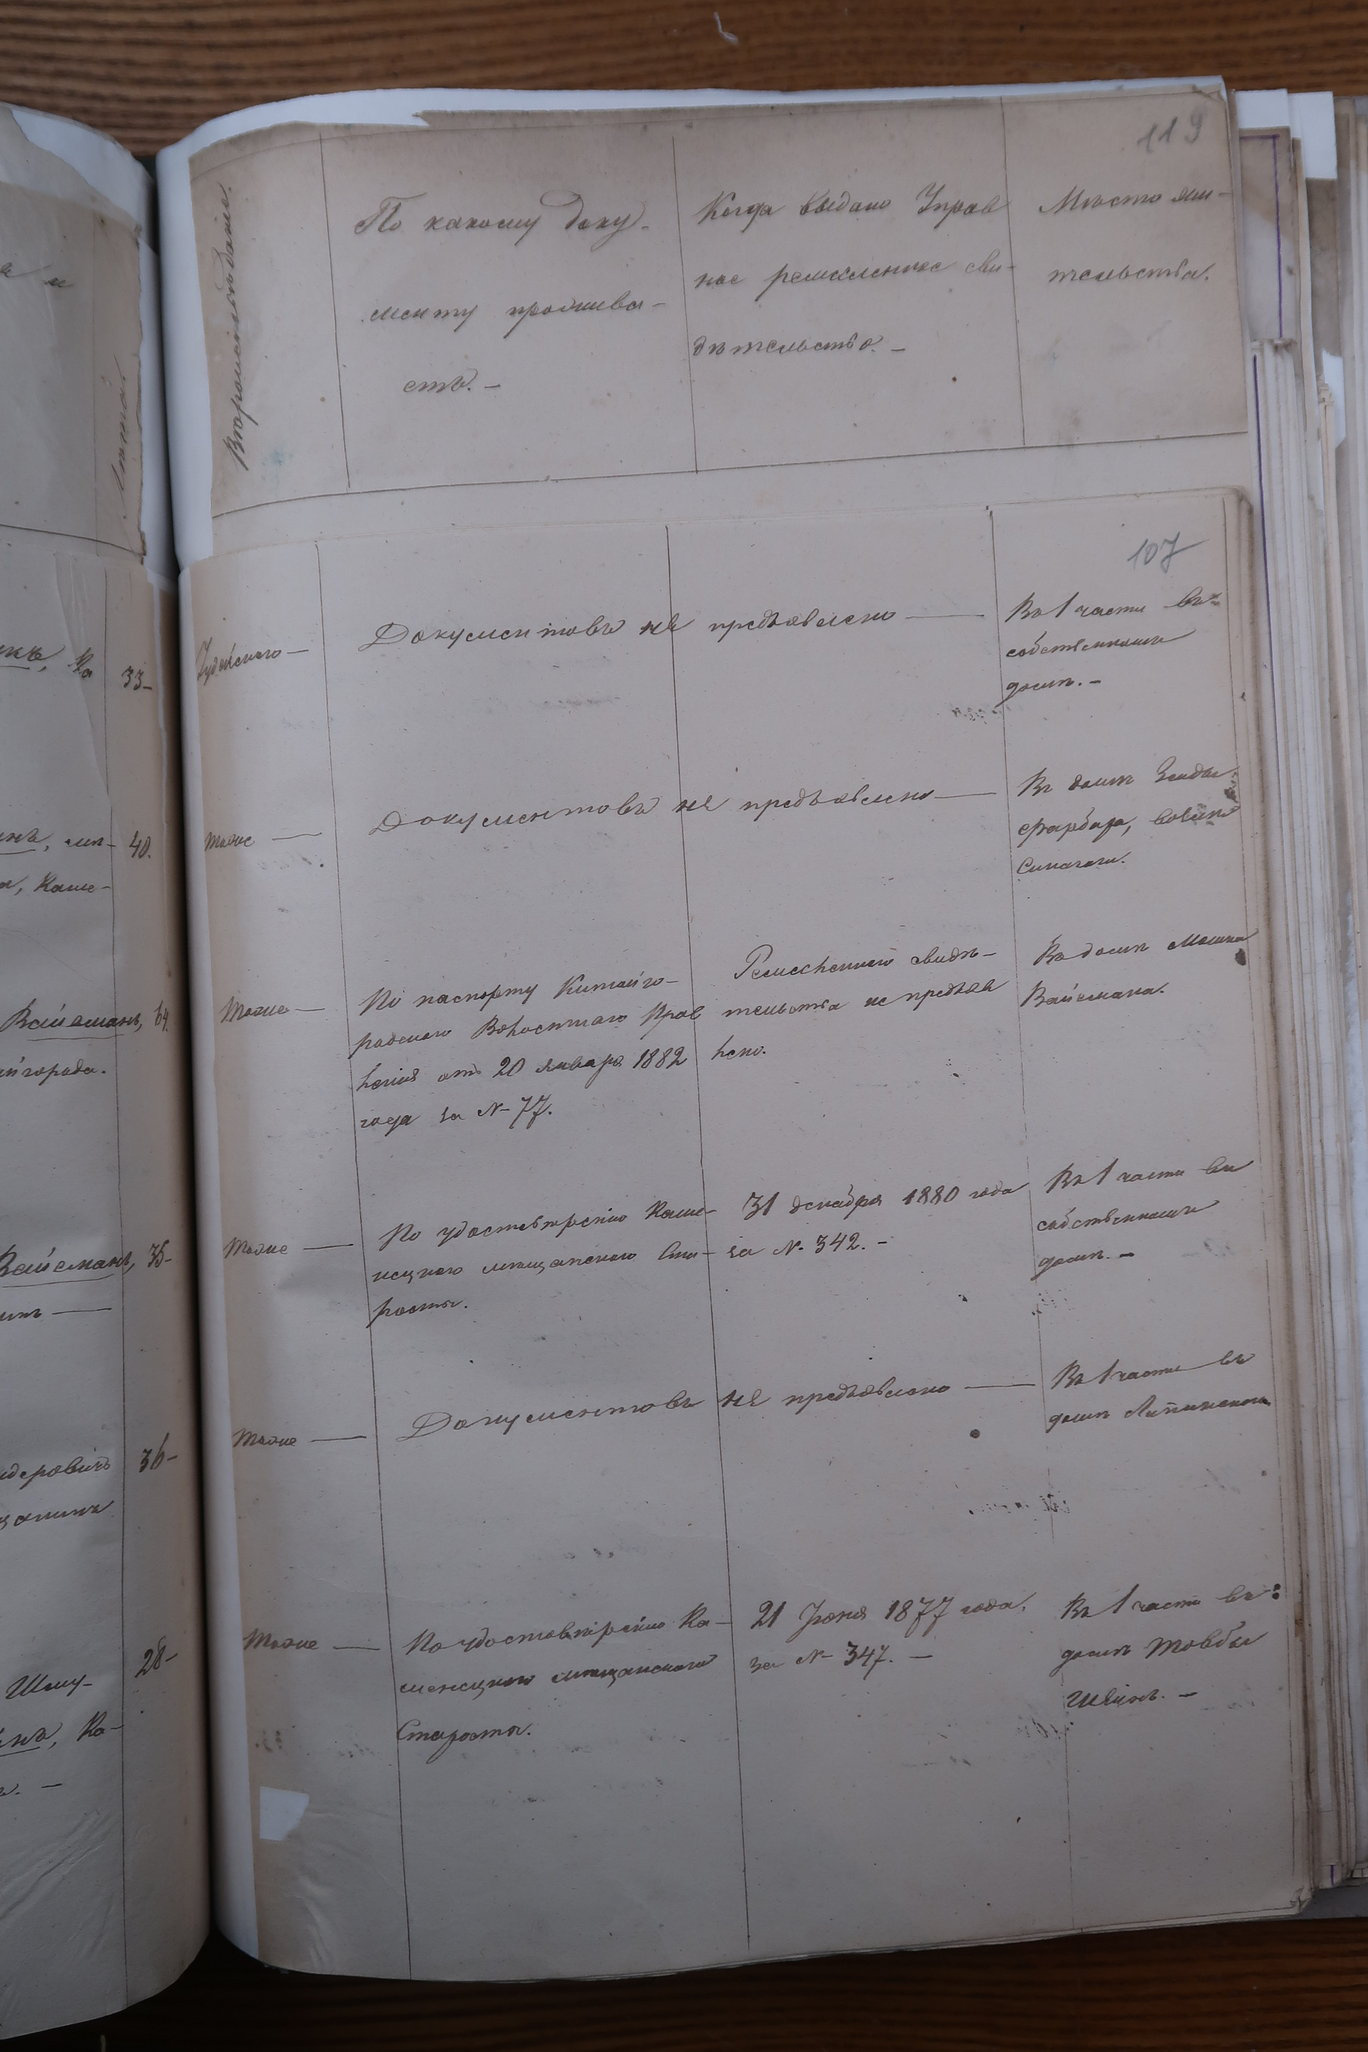 119
Вѣроисповѣданіе.
По какому доку-
менту прожива-
етъ. -
Когда выдано Управ
ное ремесленное сви-
дѣтельство. -
Мѣсто жи-
тельства.
107
Іудейскаго -
Документовъ не предъявлено
Въ 1 части въ
собственномъ
домѣ. -
Тоже
Документовъ не предъявлено
Въ домѣ
Фарбера, возлѣ
Синагоги.
Тоже
По паспорту Китайго-
родскаго Волостнаго Прав
ленія отъ 20 Января 1882
года за № 77.
Ремесленнаго свидѣ-
тельства не предъяв
лено.
Въ домѣ Мошка
Вайсмана.
Тоже
По удостовѣренію Каме-
нецкаго мѣщанскаго Ста-
росты.
31 декабря 1880 года
за № 342. -
Въ 1 части въ
собственномъ
домѣ. -
Тоже
Документовъ не предъявлено
Въ 1 части въ
домѣ
Тоже
По удостовѣренію Ка-
менецкаго мѣщанскаго
Старосты.
21 Іюня 1877 года.
за № 347. -
Въ 1 части въ
домѣ Товбы
, Ка
33-
40.
, Каме-
Вайсманъ,
64.
Вайсманъ,
35-
36-
28-
Шму-
, Ка-